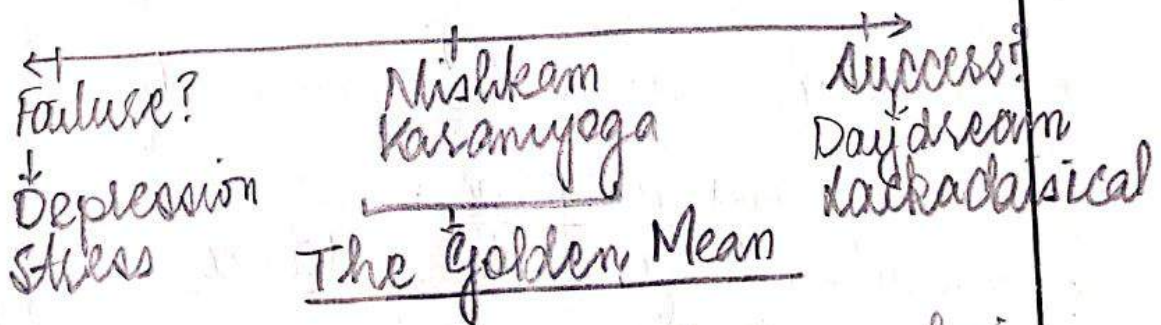 Failure?
Depression
Stress
Nishkam
Karamyoga
The Golden Mean
Success?
Daydream
Lackadaisical